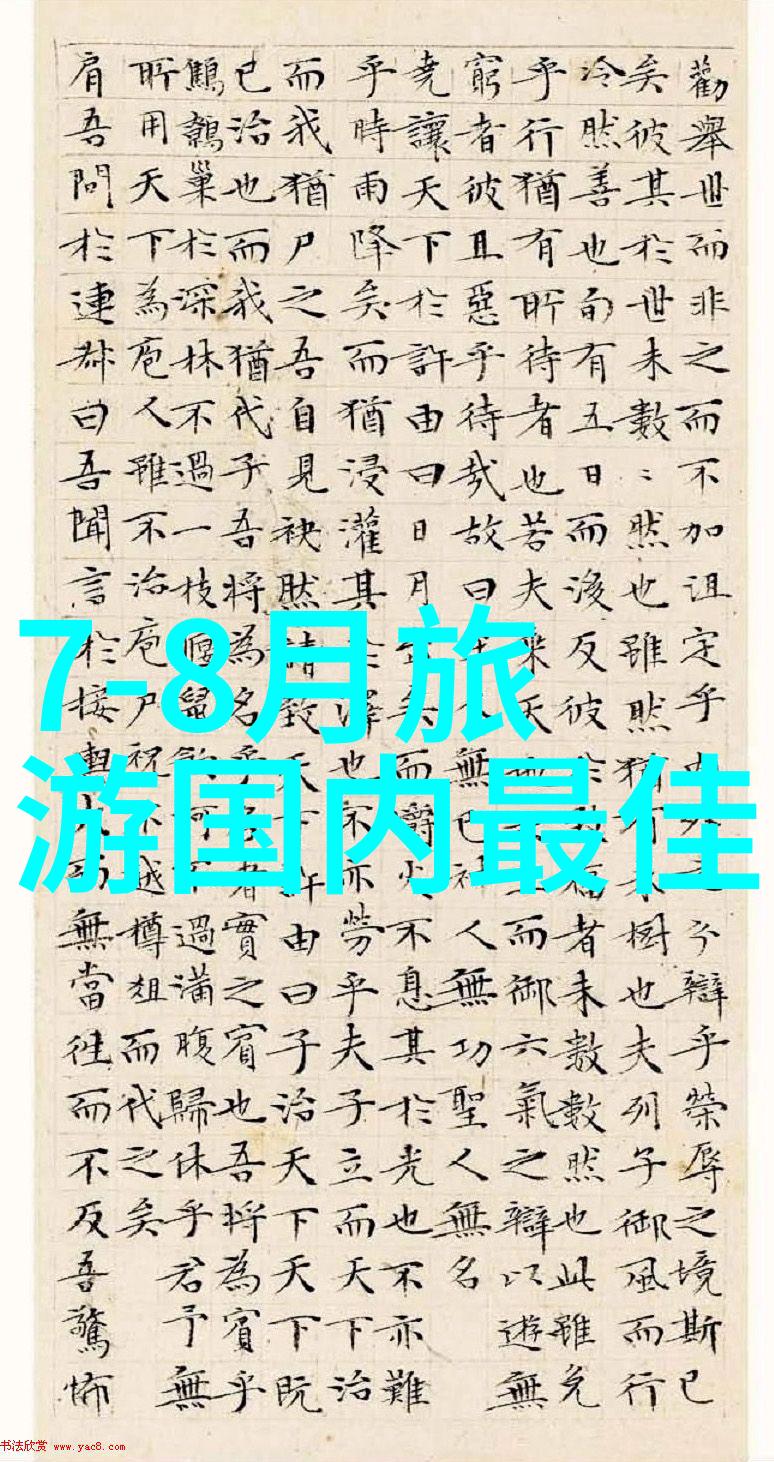 勸舉世而非之而不加沮定乎分辯乎榮辱之境斯已
矣彼其於世未數〻然也雖然猶樹也夫列子御風而行
冷然善也旬有五日而後反彼於福者未數數然也此雖免
乎行猶有所待者也若夫乘天而御六氣之辯以遊無
窮者彼且惡乎待哉故曰無已神人無功聖人無名
堯讓天下於許由曰日月矣而爝火不息其於光也不亦難
乎時雨降矣而猶浸灌其澤也不亦勞乎夫子立而天下治
而我猶尸之吾自見袂然請致天許由曰子治天下天下既
已治也而我猶代子吾將為名者實之賓也吾將為賓乎
鷦鷯巢於深林不過一枝偃鼠不過滿腹歸休乎君予無
所用天下為庖人雖不治庖尸祝不越樽俎而代之矣
肩吾問於連叔曰吾聞言於接輿大而無當往而不反吾驚怖
7-8月旅
游国内最佳
书法欣赏 www.yac8.com